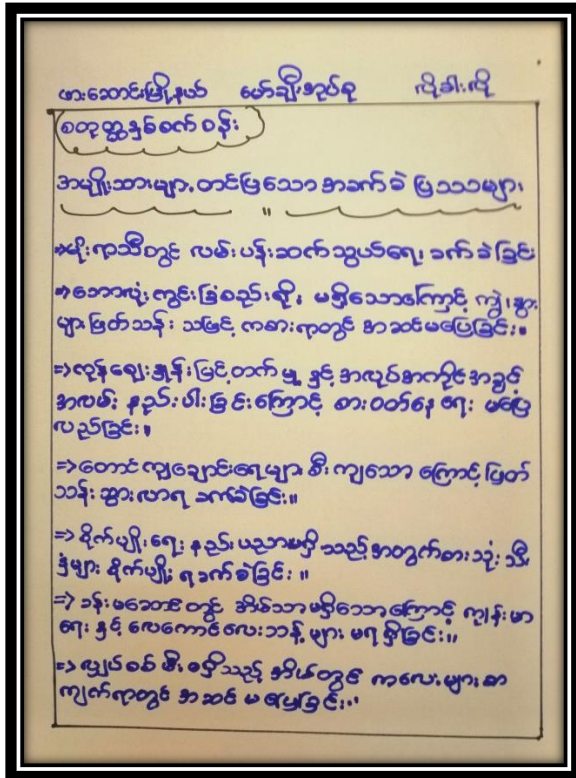 ဖားဆောင်းမြို့နယ် မော်ချီးအုပ်စု လိုခါးလို
စတုတ္ထနှစ်စက်ဝန်း
အမျိုးသားများ တင်ပြသော အခက်ခဲ ပြဿနာများ
⇒မိုးရာသီတွင် လမ်းပန်းဆက်သွယ်ရေး ခက်ခဲခြင်း
⇒ဘောလုံးကွင်းခြံစည်းရိုး မရှိသောကြောင့် ကျွဲ၊နွား
များဖြတ်သန်း သဖြင့် ကစားရာတွင် အဆင်မပြေခြင်း။
⇒ကုန်ဈေးနှုန်းမြင့်တက်မှု နှင့် အလုပ်အကိုင်အခွင့်
အလမ်း နည်းပါးခြင်းကြောင့် စားဝတ်နေရေး မပြေ
လည်ခြင်း။
⇒တောင်ကျချောင်းရေများ စီးကျသော ကြောင့် ဖြတ်
သန်းသွားလာရ ခက်ခဲခြင်း။
⇒စိုက်ပျိုးရေး နည်းပညာမရှိသည့်အတွက်စားသုံး သီး
နှံများ စိုက်ပျိုး ရခက်ခဲခြင်း ။
⇒ခန်းမဆောင်တွင် အိမ်သာမရှိသောကြောင့် ကျန်းမာ
ရေး နှင့် လေကောင်လေးသန့် များ မရရှိခြင်း။
⇒လျှပ်စစ်မီးမရှိသည့် အိမ်တွင် ကလေးများစာ
ကျက်ရာတွင် အဆင် မပြေခြင်း။